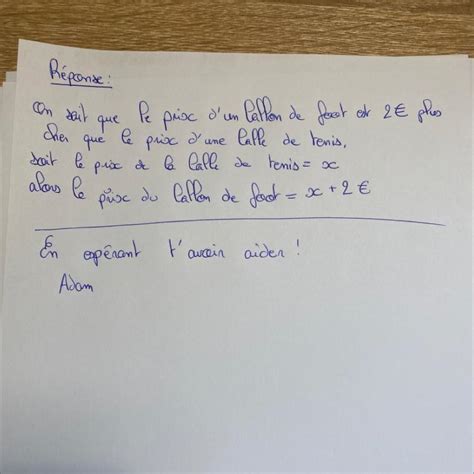 Réponse:
On sait que le prix d'un ballon de foot est 2€ plus
cher que le prix d'une balle de tenis,
soit le prix de la balle de tenis = x
alors le prix du ballon de foot = x + 2€
En espérant t'avoir aider !
Adam